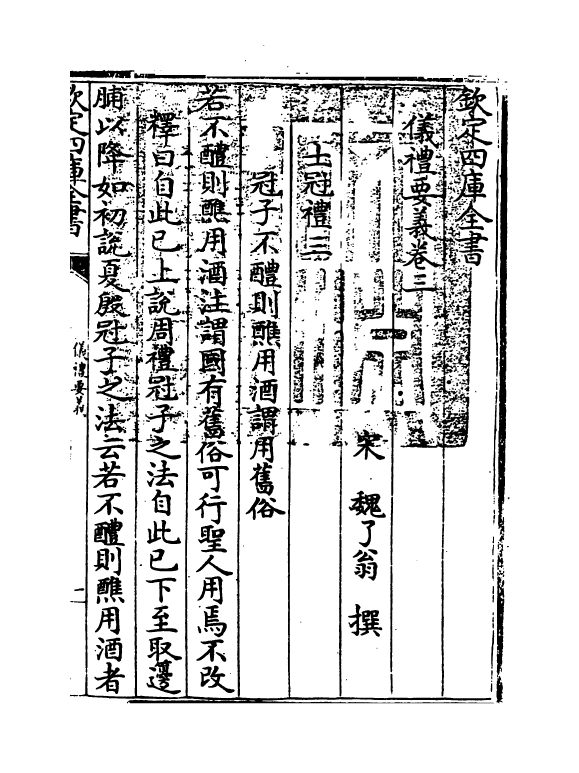 欽定四庫全書
儀禮要義卷三
宋 魏了翁 撰
士冠禮三
冠子不醴則醮用酒謂用舊俗
若不醴則醮用酒注謂國有舊俗可行聖人用焉不改
釋曰自此已上說周禮冠子之法自此已下至取籩
脯以降如初說夏殷冠子之法云若不醴則醮用酒者
欽定四庫全書
儀禮要義